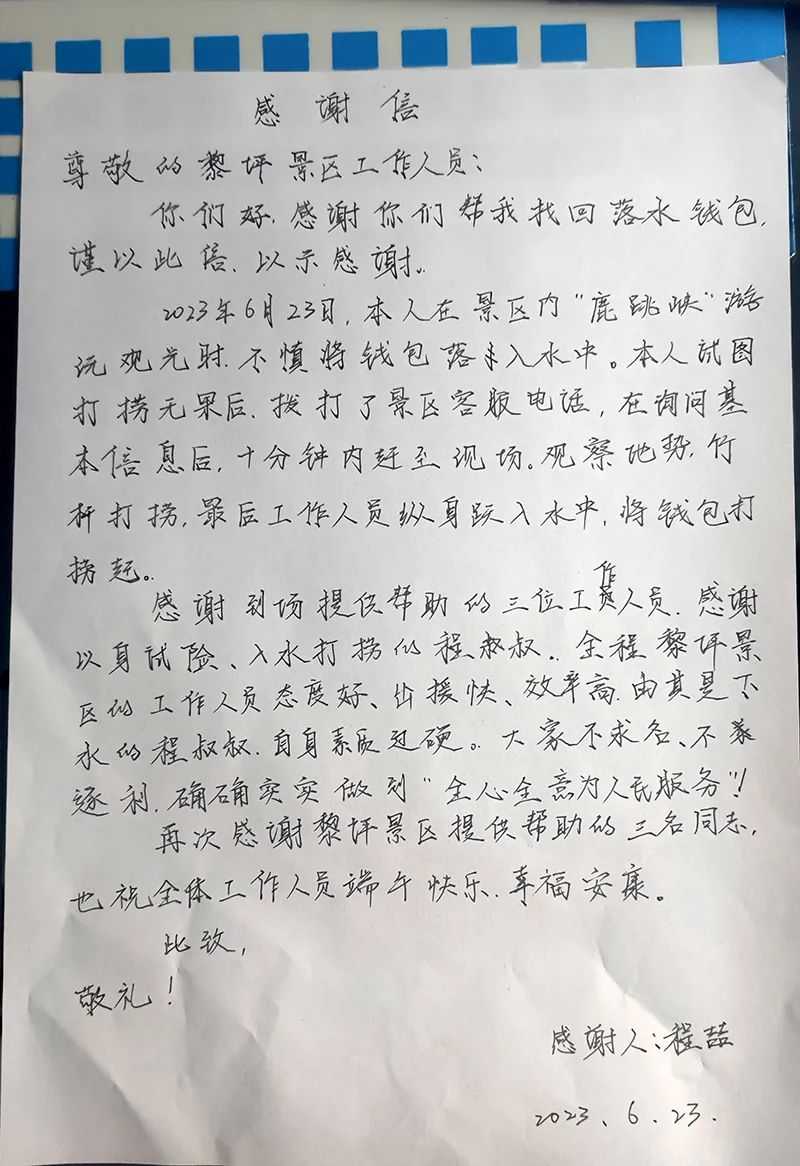 感谢信
尊敬的黎坪景区工作人员：
你们好，感谢你们帮我找回落水钱包，
谨以此信，以示感谢。
2023年6月23日，本人在景区内“鹿跳峡”游
玩观光时，不慎将钱包落入水中。本人试图
打捞无果后，拨打了景区客服电话，在询问基
本信息后，十分钟内赶至现场。观察地势，竹
杆打捞，最后工作人员纵身跃入水中，将钱包打
捞起。
感谢到场提供帮助的三位工作人员，感谢
以身试险、入水打捞的程叔叔。全程黎坪景
区的工作人员态度好、出援快、效率高，由其是下
水的程叔叔，自身素质过硬。大家不求名、不
逐利，确确实实做到“全心全意为人民服务”！
再次感谢黎坪景区提供帮助的三名同志，
也祝全体工作人员端午快乐，幸福安康。
此致，
敬礼！
感谢人：程喆
2023.6.23.